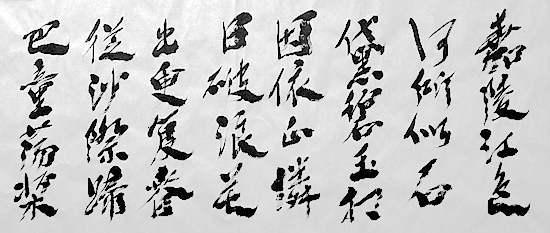 嘉陵江色
何所似石
黛碧玉相
因依正憐
日破浪花
出更復春
從沙際歸
巴童蕩槳